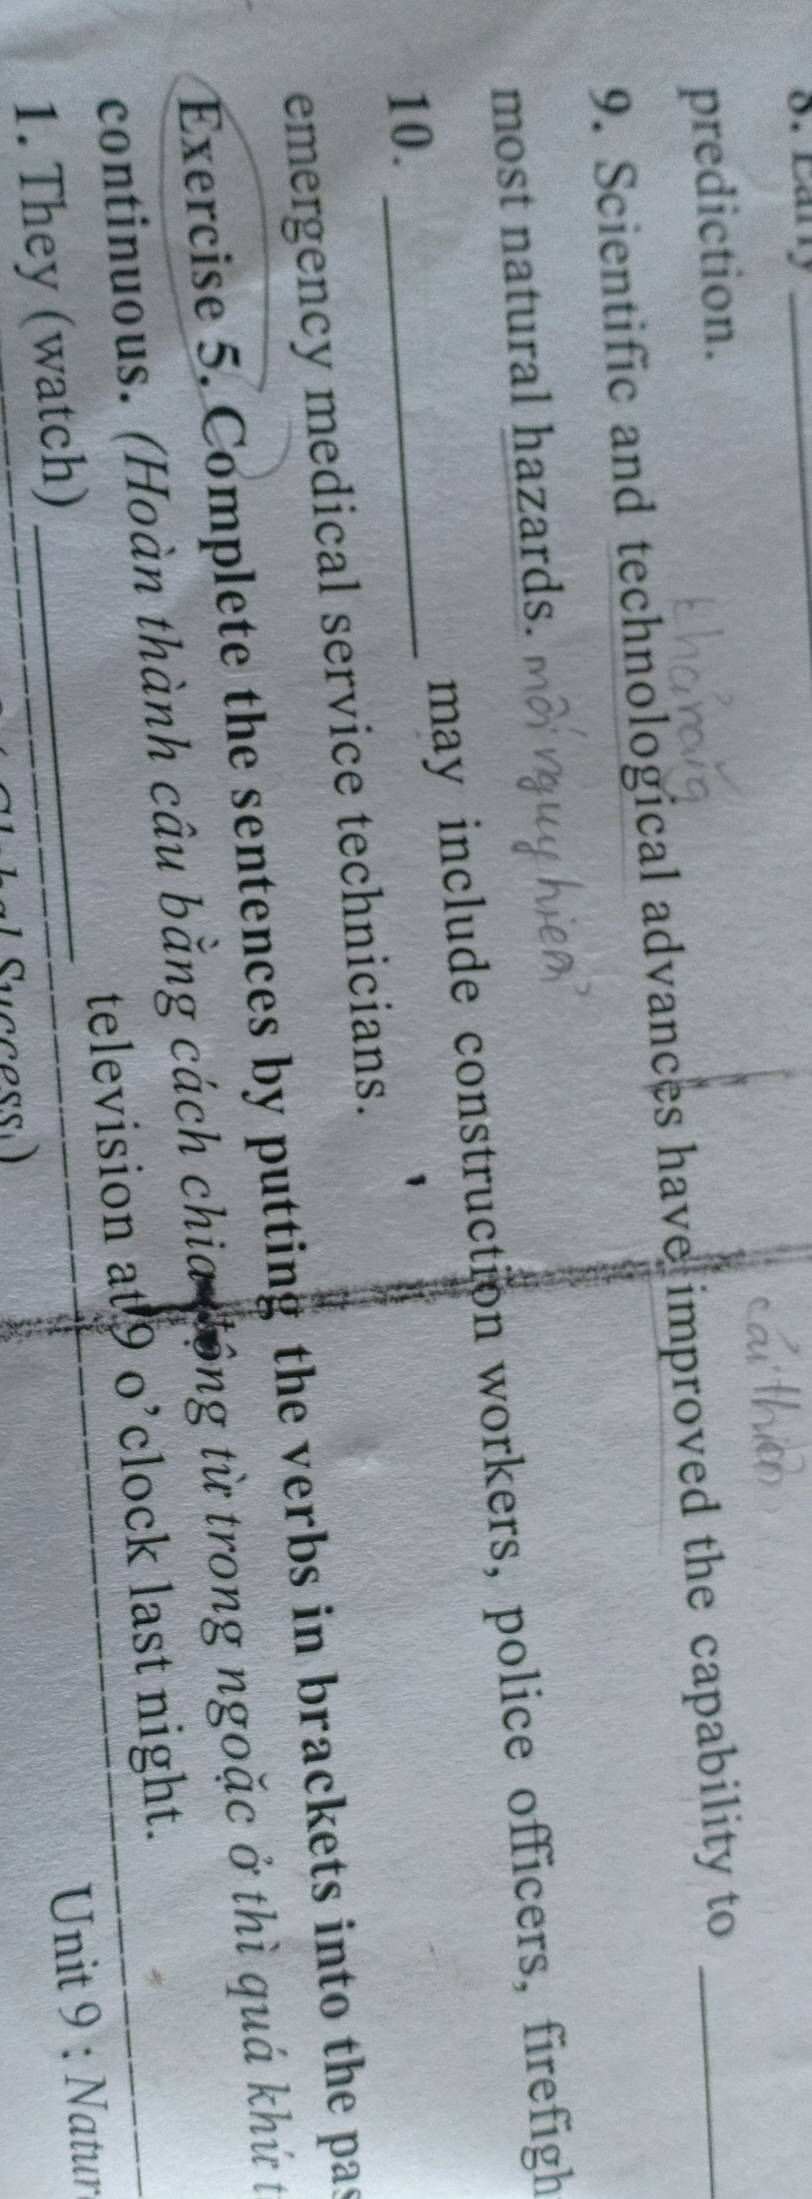 8. Early
prediction.
9. Scientific and technological advances have improved the capability to
cải thiện
most natural hazards. mối nguy hiểm
10. may include construction workers, police officers, firefigh
emergency medical service technicians.
Exercise 5. Complete the sentences by putting the verbs in brackets into the pas
continuous. (Hoàn thành câu bằng cách chia động từ trong ngoặc ở thì quá khứ t
1. They (watch) television at 9 o'clock last night.
Unit 9 : Natur
Global Success)